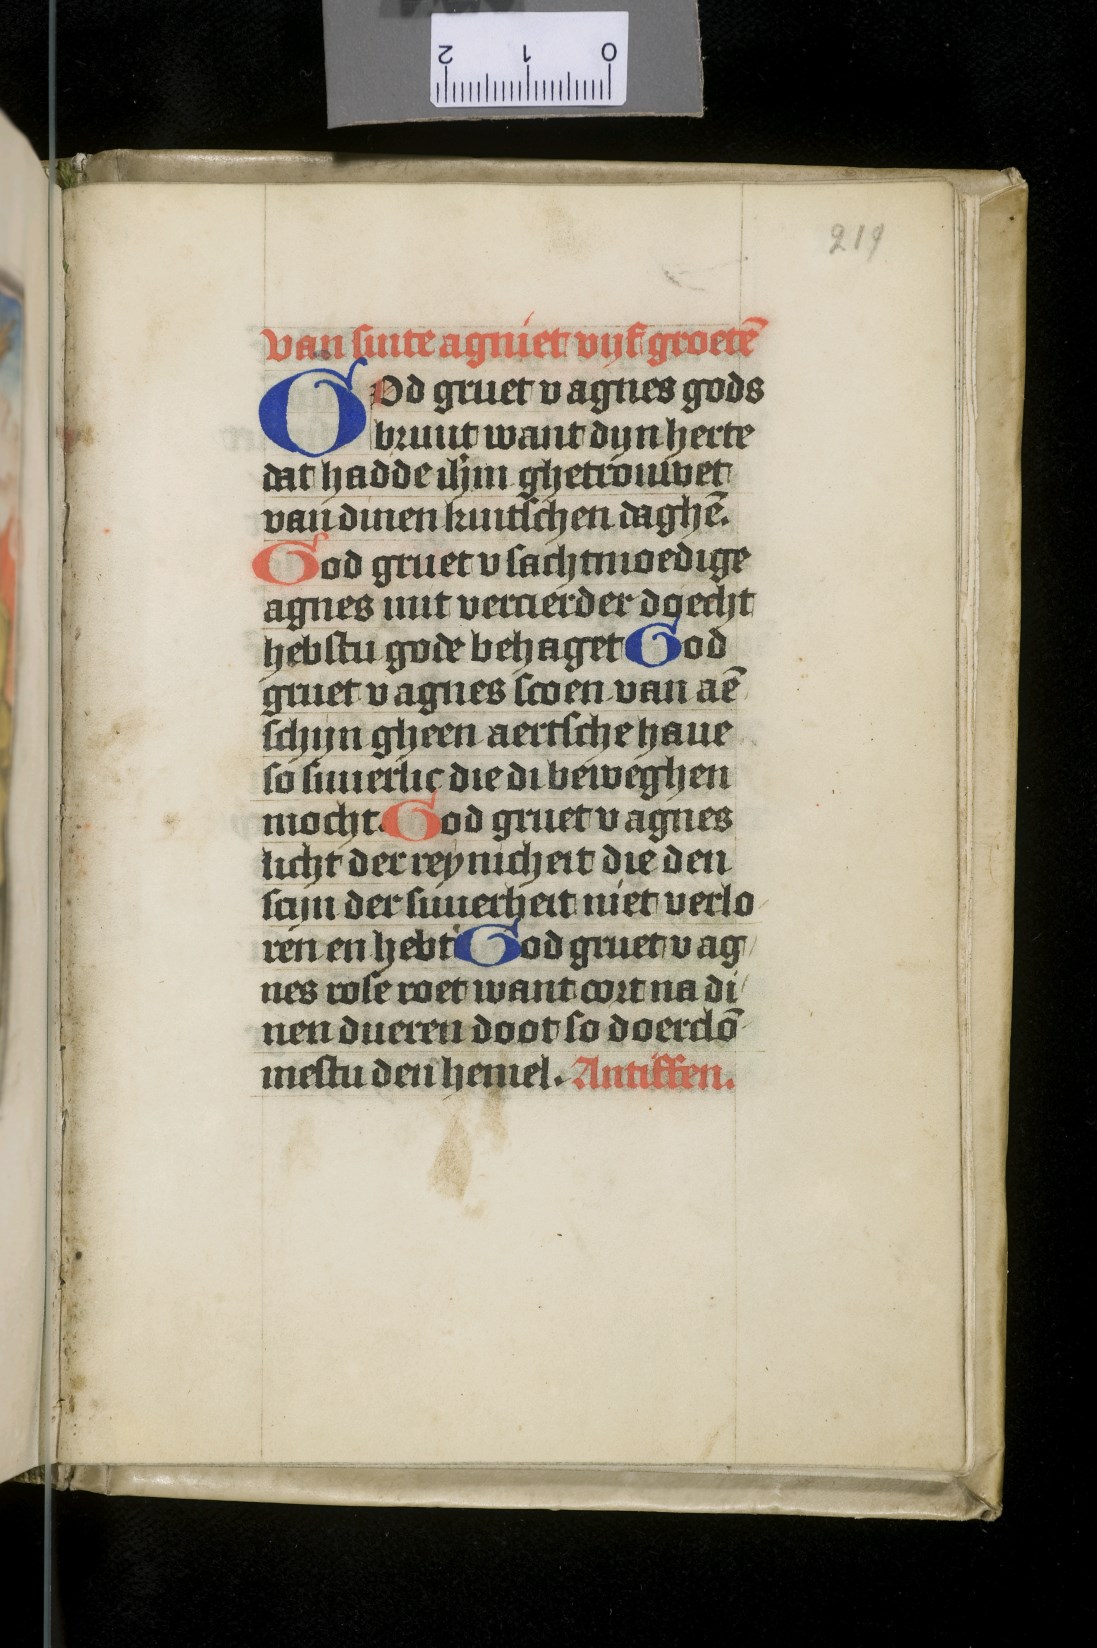 2 1 0
219
van sinte agniet vijf groetē
God gruet v agnes gods
bruut want dyn herte
dat hadde ihm ghetrouwet
van dinen kintschen daghē.
God gruet v sachtmoedige
agnes mit vercierder doecht
hebstu gode behaget God
gruet v agnes scoen van aē
schijn gheen aertsche haue
so suuerlic die di beweghen
mocht. God gruet v agnes
licht der reynicheit die den
scijn der suuerheit niet verlo
ren en hebt God gruet v ag
nes rose roet want cort na di
nen dueren doot so doerclō
mestu den hemel. Antiffen.